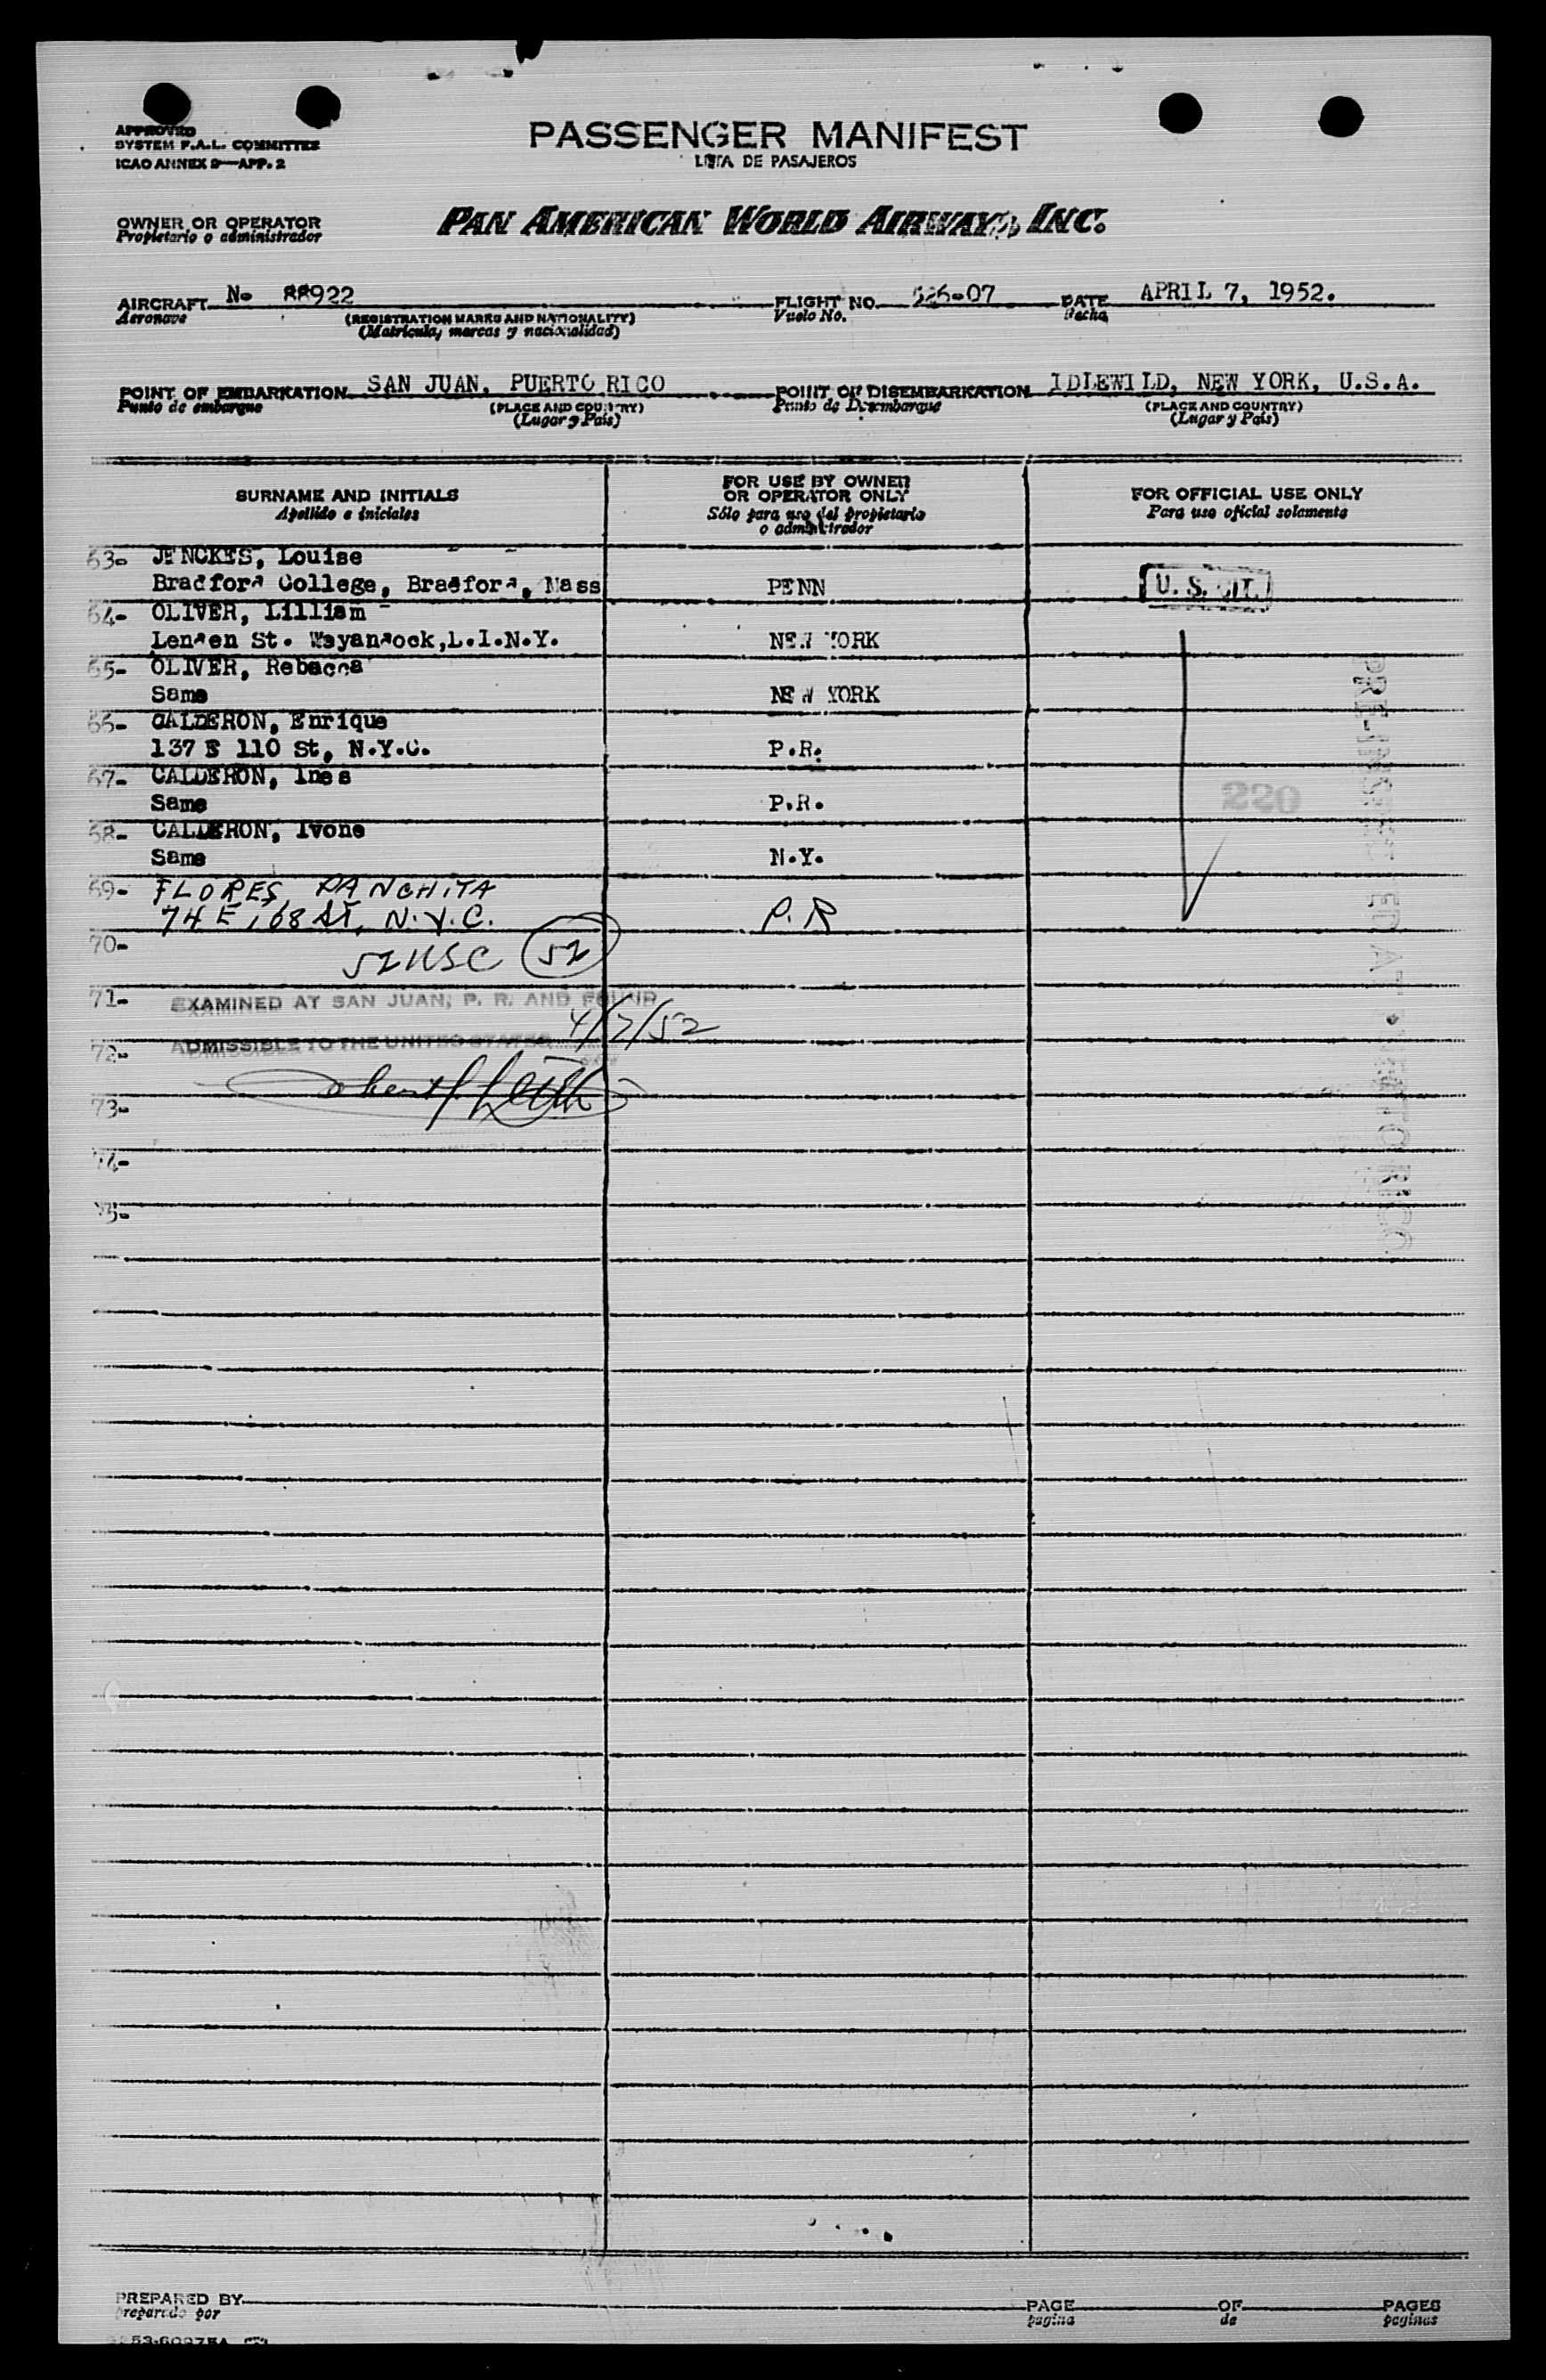 APPROVED
SYSTEM F.A.L. COMMITTEE
ICAO ANNEX 9—APP. 2
PASSENGER MANIFEST
LISTA DE PASAJEROS
OWNER OR OPERATOR
Propietario o administrador
PAN AMERICAN WORLD AIRWAYS, INC.
AIRCRAFT No 88922
Aeronave
(REGISTRATION MARKS AND NATIONALITY)
(Matricula, marcas y nacionalidad)
FLIGHT NO. 526-07
Vuelo No.
DATE APRIL 7, 1952.
Fecha
POINT OF EMBARKATION SAN JUAN, PUERTO RICO
Punto de embarque
(PLACE AND COUNTRY)
(Lugar y País)
POINT OF DISEMBARKATION IDLEWILD, NEW YORK, U.S.A.
Punto de Desembarque
(PLACE AND COUNTRY)
(Lugar y País)
SURNAME AND INITIALS
Apellido e iniciales
FOR USE BY OWNER
OR OPERATOR ONLY
Sólo para uso del propietario
o administrador
FOR OFFICIAL USE ONLY
Para uso oficial solamente
63- JENCKES, Louise
Bradford College, Bradford, Mass PENN U. S. CIT.
64- OLIVER, Lilliam
Lenden St. Wayandock,L.I.N.Y. NEW YORK
65- OLIVER, Rebacca
Same NEW YORK
66- CALDERON, Enrique
137 E 110 St, N.Y.C. P.R.
67- CALDERON, Ines
Same P.R.
220
68- CALDERON, Ivone
Same N.Y.
69- FLORES, PANCHITA
74 E 168 St, N.Y.C. P.R
70-
52 USC 52
71- EXAMINED AT SAN JUAN, P. R. AND FOUND
72- ADMISSIBLE TO THE UNITED STATES 4/7/52
73-
74-
75-
PRE-INSPECTED AT PUERTO RICO
PREPARED BY
Preparado por
PAGE OF PAGES
pagina de paginas